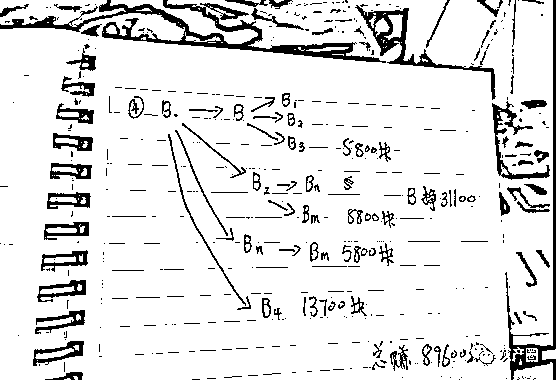 ④ B. → B → B₁
→ B₂
→ B₃ 5800块
B₂ → Bn
→ Bm 8800块
B 31100
Bn → Bm 5800块
B₄ 13700块
总赚 89600